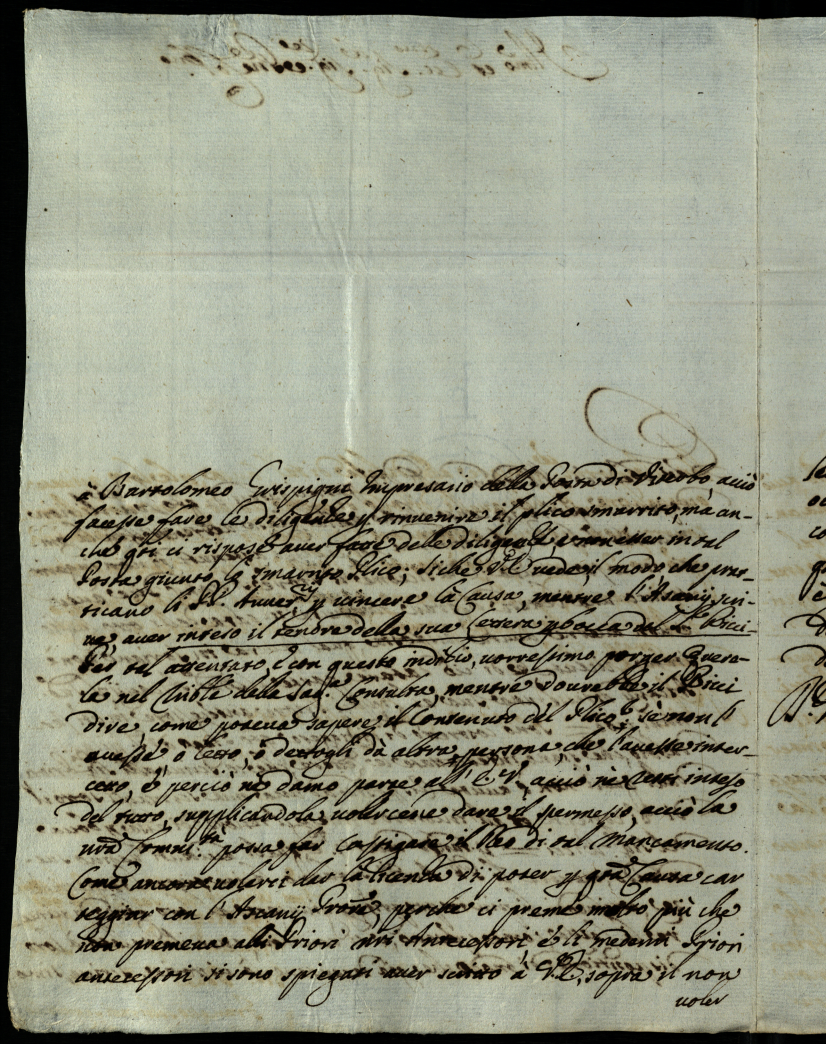 à Bartolomeo Crispigni Impresario della Posta di Viterbo, acciò
facesse fare le diligenze p rinvenire il plico smarrito, mà an-
che qti ci rispose aver fatte delle diligenze, e non esser in tal
Posta giunto lo smarrito Plico; siche V.E. vede il modo che prat-
ticano li SS.ri Avver.rij p vincere la Causa, mentre l'Ascanij scri-
ve, aver inteso il tenore della sua lettera p bocca del Sr Bicci-
Per tal attentato, e con questo indizio, vorressimo porger quere-
la nel Trible della Sag.a Consulta, mentre dourebbe il Bicci
dire, come poteva sapere il contenuto del Plico, se non l'
avesse ò letto, ò dettogli dà altra persona, che l'avesse inter-
cetto, e perciò ne damo parte all' E.V., acciò ne resti inteso
del tutto, supplicandola volercene dare il permesso, acciò la
nrã Comm.tà possa far castigare il Reo di tal mancamento.
Come ancora volerci dar la licenza di poter p qtã Causa car
teggiar con l'Ascanij Proñe, perche ci preme molto più che
non premeva alli Priori nrĩ Antecessori, e li medemi Priori
antecessori si sono spiegati aver scritto à V.E, sopra il non
voler